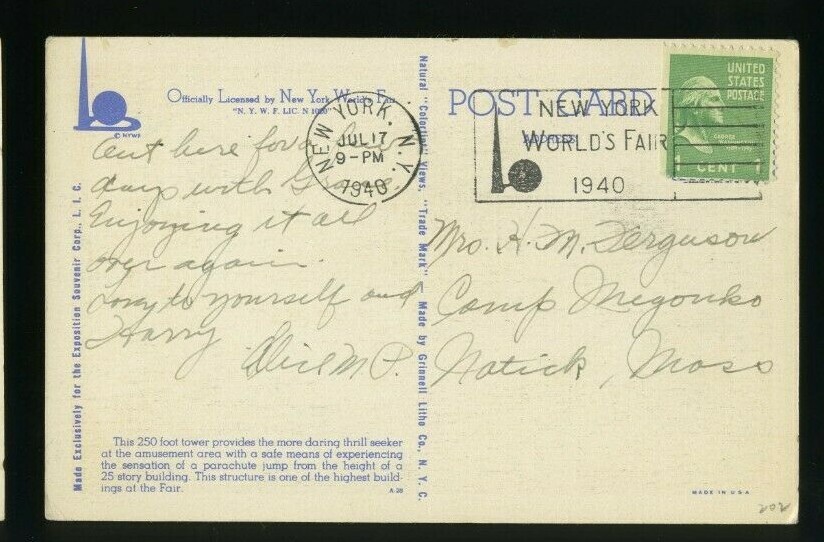 © NYWF
Officially Licensed by New York World's Fair
"N. Y. W. F. LIC. N 1020"
Out here for a few
days with Grace
Enjoying it all
over again.
Love to yourself and
Harry
Alice M P.
This 250 foot tower provides the more daring thrill seeker
at the amusement area with a safe means of experiencing
the sensation of a parachute jump from the height of a
25 story building. This structure is one of the highest build-
ings at the Fair.
A 28
Made Exclusively for the Exposition Souvenir Corp., L. I. C.
Natural "Colorline" Views. "Trade Mark" — Made by Grinnell Litho Co., N. Y. C.
NEW YORK, N.Y.
JUL 17
9-PM
1940
POST CARD
ADDRESS
NEW YORK
WORLD'S FAIR
1940
UNITED
STATES
POSTAGE
GEORGE WASHINGTON
1 CENT 1
Mrs. H. M. Ferguson
Camp Megonko
Natick, Mass
MADE IN U S A
202